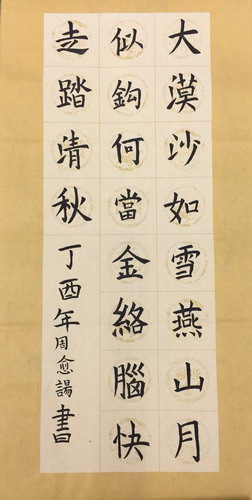 大漠沙如雪燕山月
似鈎何當金絡腦快
走踏清秋丁酉年周愈諹書